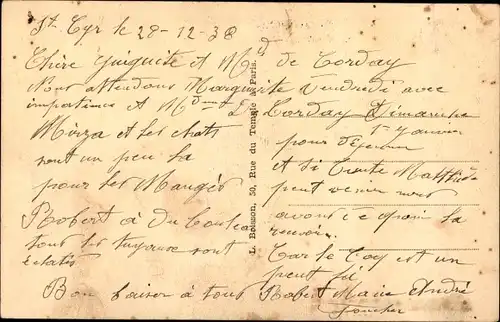 St Cyr le 28-12-38
Chère Guiguite et Md de Corday
Nous attendons Marguerite Vendredi avec
impatience et Md de Corday Dimanche
1er Janvier
Mirza et les chats pour déjeuner
sont un peu la et si Tante Mathilde
pour les Manger peut venir nous
Robert a du Couteau avons ce quoi la
tous les tuyaux sont recevoir
éclatés Car le Coq est un
peut
Bon baiser a tous Robert Marie André
Foucher
L. Boisson, 50, Rue du Temple à Paris.